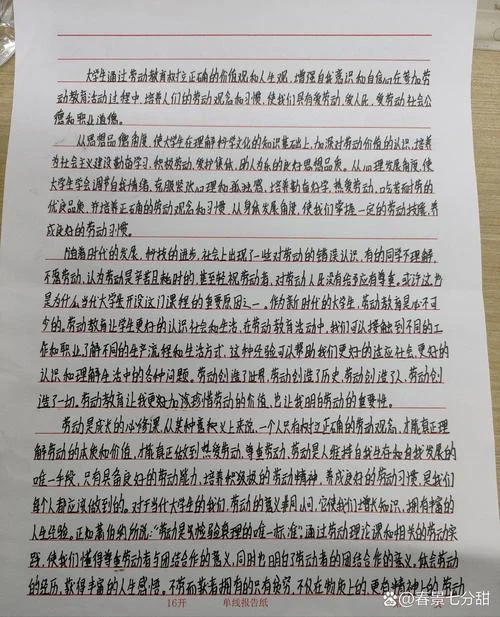 大学生通过劳动教育树立正确的价值观和人生观，增强自我意识和自信心在参加劳
动教育活动过程中，培养人们的劳动观念和习惯，使我们具有爱劳动，爱人民，爱劳动社会公
德和职业道德。
从思想品德角度，使大学生在理解科学文化的知识基础上，加深对劳动价值的认识，培养
为社会主义建设勤奋学习，积极劳动，爱护集体，助人为乐的良好思想品质。从心理发展角度，使
大学生学会调节自我情绪，克服紧张心理和孤独感，培养勤奋好学，热爱劳动，吃苦耐劳的
优良品质，并培养正确的劳动观念和习惯，从身体发展角度，使我们掌握一定的劳动技能，养
成良好的劳动习惯。
随着时代的发展，科技的进步，社会上出现了一些对劳动的错误认识，有的同学不理解，
不愿劳动，认为劳动是辛苦且耗时的，甚至轻视劳动者，对劳动人民没有给予应有尊重。或许这也
是为什么当代大学生开设这门课程的重要原因之一。作为新时代的大学生，劳动教育是必不可
少的。劳动教育让学生更好的认识社会和生活，在劳动教育活动中，我们可以接触到不同的工
作和职业，了解不同的生产流程和生活方式，这种经验可以帮助我们更好的适应社会，更好的
认识和理解生活中的各种问题。劳动创造了世界，劳动创造了历史，劳动创造了人，劳动创
造了一切。劳动教育让我更好加深珍惜劳动的价值，也让我明白劳动的重要性。
劳动是成长的必修课，从某种意义上来说，一个人只有树立正确的劳动观念，才能真正理
解劳动的本质和价值，才能真正做到热爱劳动，尊重劳动，劳动是人维持自我生存和自我发展的
唯一手段，只有具备良好的劳动能力，培养积极的劳动精神，养成良好的劳动习惯，是我们
每个人都应该做到的。对于当代大学生的我们，劳动的意义，它使我们增长知识，拥有丰富的
人生经验。正如所说："劳动是检验真理的唯一标准"。通过劳动理论课和相关的劳动实
践，使我们懂得尊重劳动者与团结合作的意义，同时也明白了劳动者的团结合作的意义。体会劳动
的经历，获得丰富的人生感悟。不劳而获者拥有的只有贫穷，不仅在物质上的，更有精神上的劳动
16开 单线报告纸
@春景七分甜